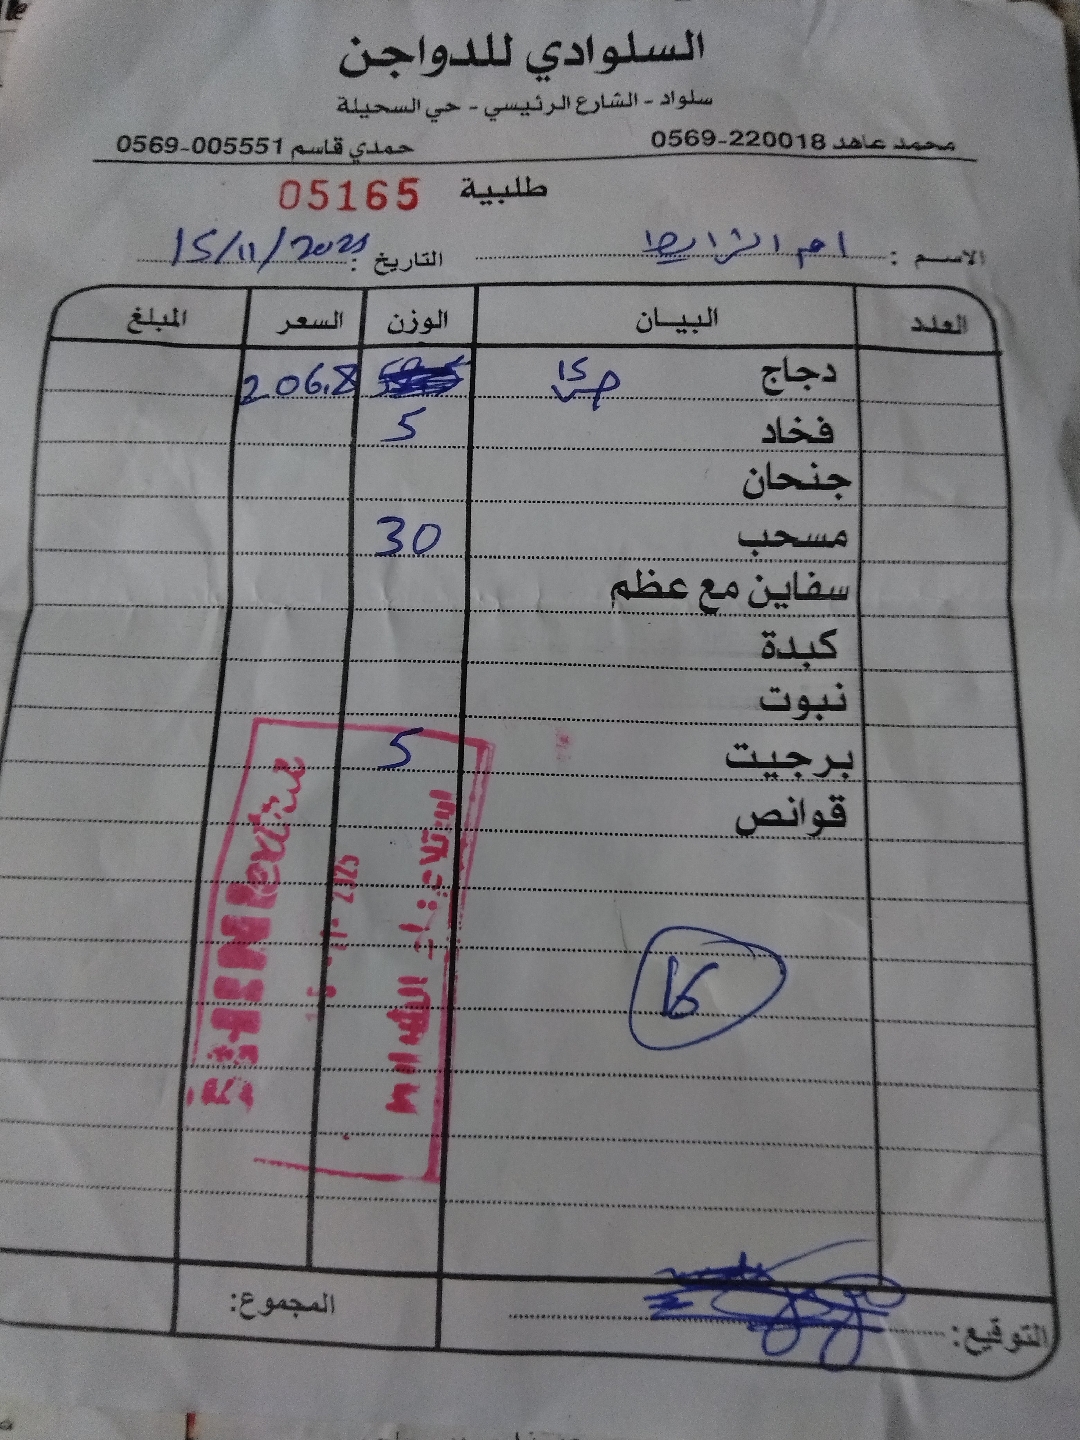 السلوادي للدواجن
سلواد - الشارع الرئيسي - حي السحيلة
محمد عاهد 0569-220018 حمدي قاسم 0569-005551
طلبية 05165
الاسم : ام التاريخ : 15/11/2025
العدد البيان الوزن السعر المبلغ
دجاج 15 206.8
فخاد 5
جنحان
مسحب 30
سفاين مع عظم
كبدة
نبوت
برجيت 5
قوانص
16
2025
المجموع:
التوقيع: